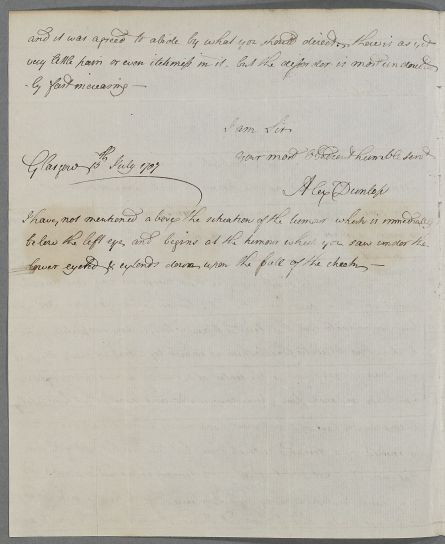 and it was agreed to abide by what you should direct, there is as yet
very little pain or even itchiness in it, but the disorder is most undoubted
-ly fast increasing —
I am Sir
Your most Obedient humble Servt
Glasgow July
Alex Dunlop
I have not mentioned above the situation of the tumour which is immediately
below the left eye, and begins at the tumour which you saw under the
lower eyelid & extends down upon the fall of the cheek. —